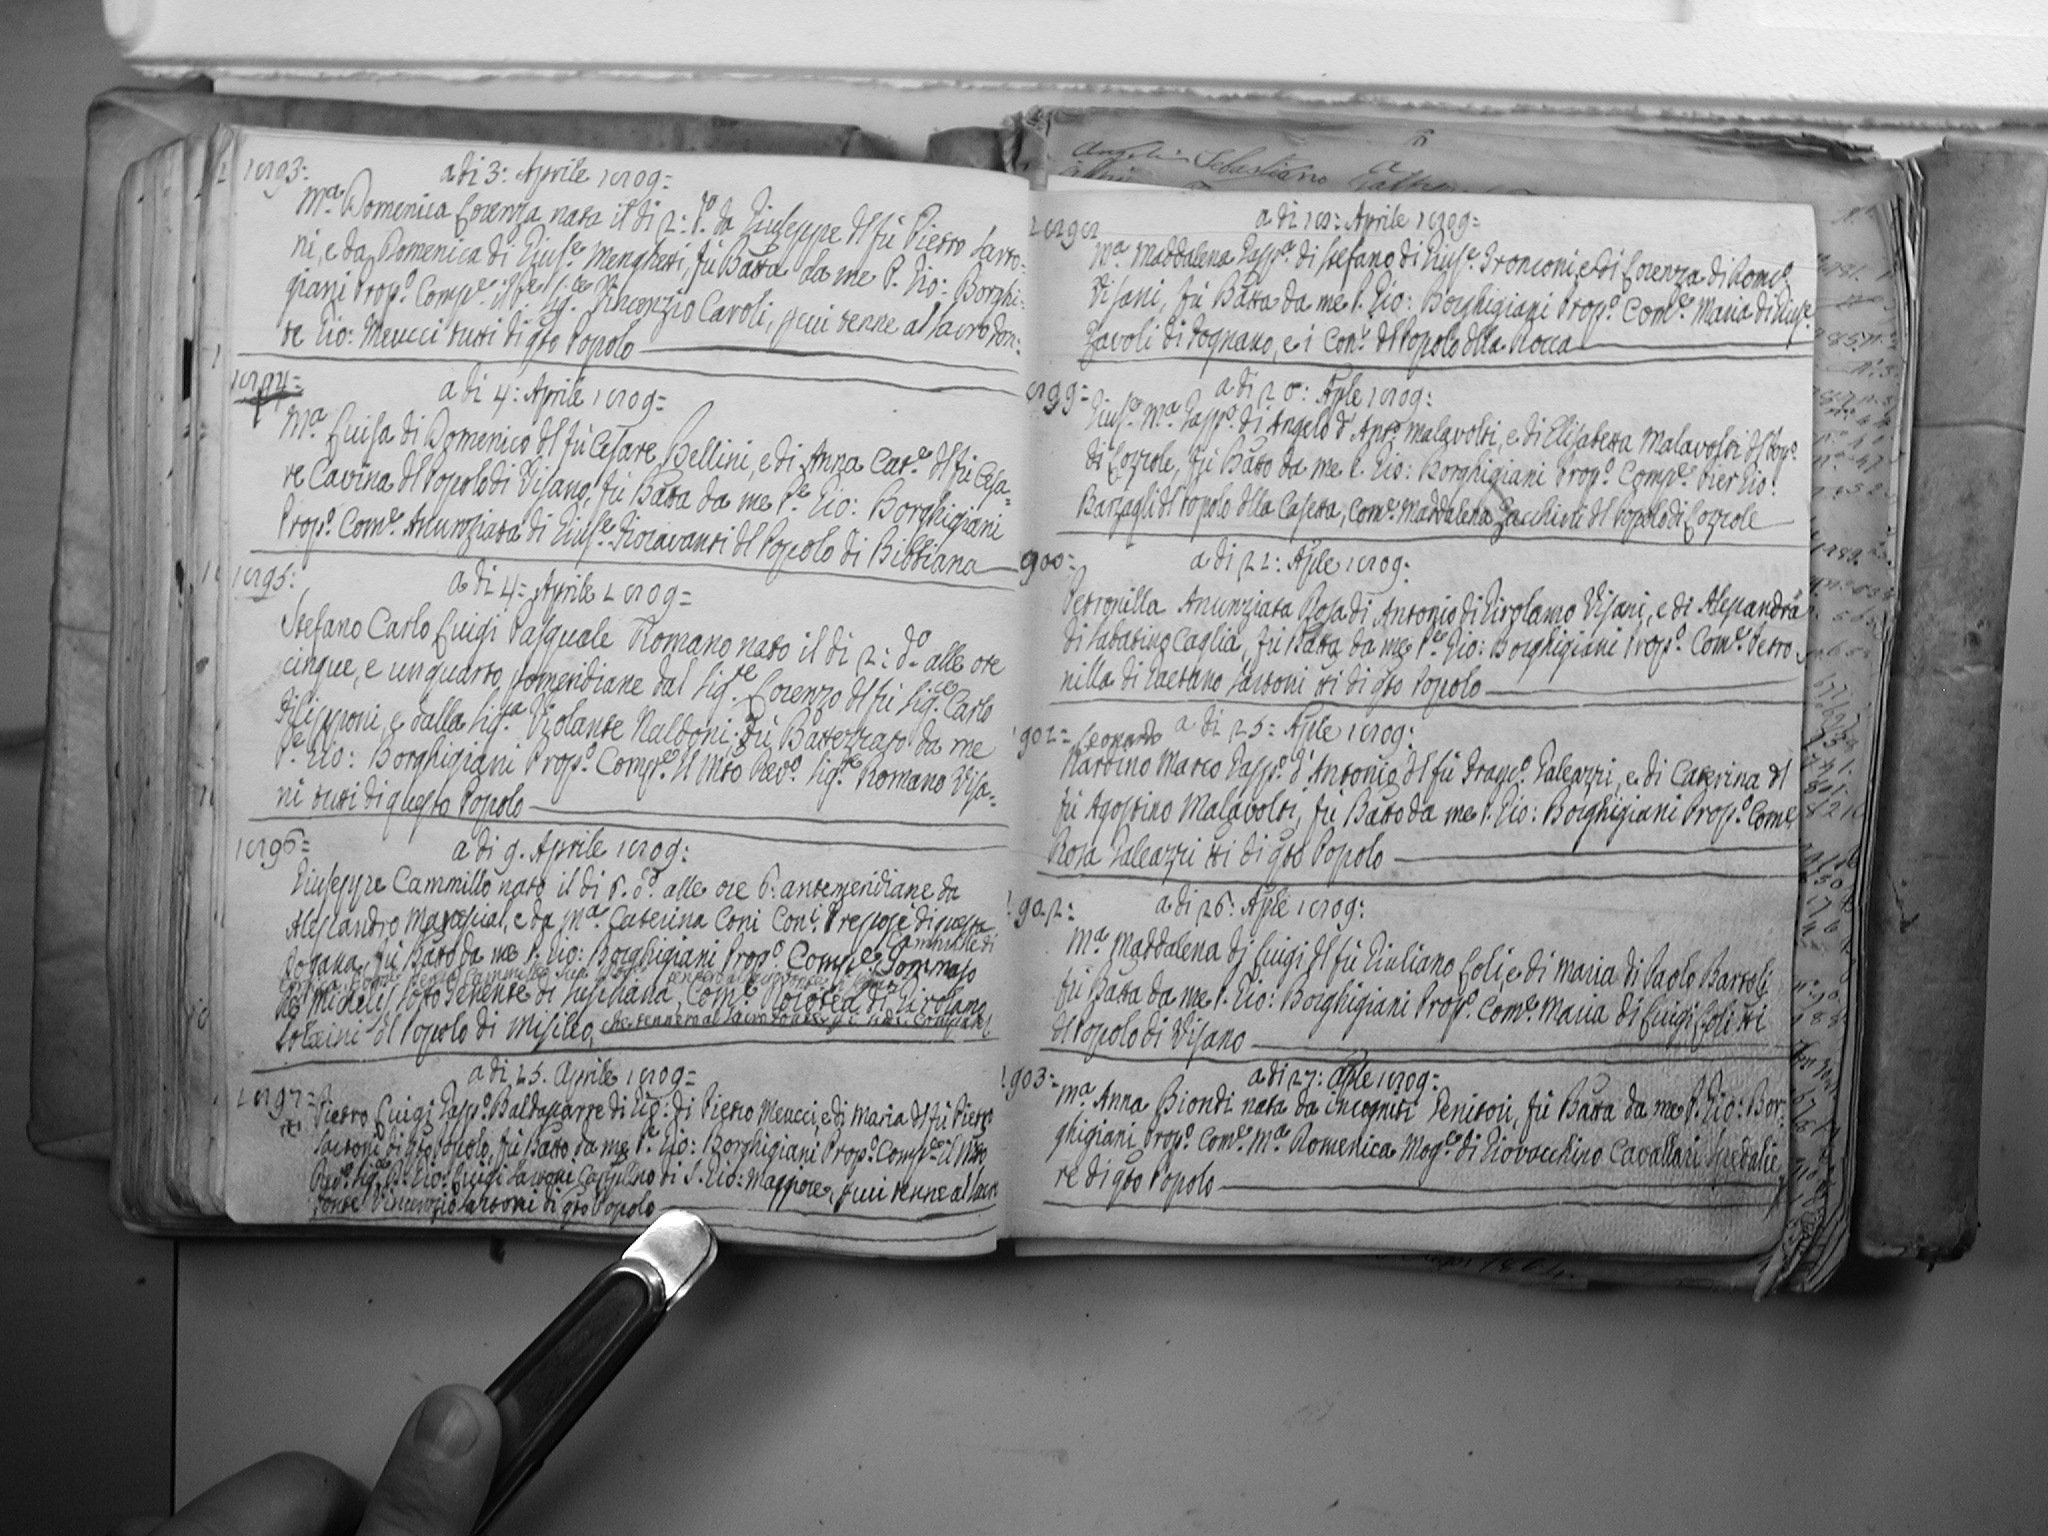 1893:
a di 3: Aprile 1809=
Ma. Domenica Lorenza nata il di 2: do. da Giuseppe del fù Pietro Sarto=
ni, e da Domenica di Giuse. Menghetti, fù Batta da me P. Gio: Borghi=
giani Propo. Compe. il Sig. Vincenzio Cavoli, p cui tenne al sacro fon:
te Gio: Meucci tutti di qto Popolo
1894=
a di 4: Aprile 1809=
Ma. Luisa di Domenico del fù Cesare Bellini, e di Anna Cate. del fù Cesa=
re Cavina del Popolo di Visano, fù Batta da me Pe. Gio: Borghigiani
Propo. Come. Anunziata di Giuse. Fioravanti del Popolo di Bibbiana
1895:
a di 4= Aprile 1809=
Stefano Carlo Luigi Pasquale Romano nato il di 2: do. alle ore
cinque, e un quarto pomeridiane dal Sigre. Lorenzo del fù Sigre. Carlo
Filipponi, e dalla Siga. Violante Naldoni. fù Battezzato da me
Pe. Gio: Borghigiani Propo. Compe. Il Mto Revo. Sigre. Romano Visa=
ni tutti di questo Popolo
1896=
a di 9. Aprile 1809:
Giuseppe Cammillo nato il di 8. do. alle ore 6: antemeridiane da
Alessandro Mariscial, e da Ma. Caterina Coni Coni. Preposé di questa
Dogana, fù Batto da me P. Gio: Borghigiani Propo. Compe. Tommaso
Cammillo di
de Michelis sotto Tenente di Come. Dorotea di Girolamo
Solaini del Popolo di Misileo, che tennero al sacro fonte
1897:
a di 15. Aprile 1809=
Pietro Luigi Gaspo. Baldassarre di Gio: di Pietro Meucci, e di Maria del fù Pietro
Sartoni di qto Popolo, fù Batto da me Pe. Gio: Borghigiani Propo. Compe. il Mto
Revo. Sigre. De. Gio: Luigi Sartoni Cappellno di S. Gio: Maggiore, p cui tenne al sacro
fonte Vincenzio Sartoni di qto Popolo
1898
a di 18: Aprile 1809=
Ma. Maddalena Gaspa. di Stefano di Giuse. Tronconi, e di Lorenza di Domco.
Visani, fù Batta da me P. Gio: Borghigiani Propo. Come. Maria di Giuse.
Zavoli di Pognano, e i Coni. del Popolo della Rocca
899=
a di 20: Aple 1809:
Giuse. Ma. Gaspo. di Angelo d' Anto. Malavolti, e di Elisabetta Malavolti del Popo.
di Lozzole, fù Batto da me P. Gio: Borghigiani Propo. Compe. Pier Gio:
Barzagli del Popolo della Casetta, Come. Maddalena Zacchini del Popolo di Lozzole
900=
a di 22: Aple 1809:
Petronilla Anunziata Rosa di Antonio di Girolamo Visani, e di Alessandra
di Sabatino Caglia, fù Batta da me Pe. Gio: Borghigiani Propo. Come. Petro=
nilla di Gaetano Sartoni tti di qto Popolo
901=
a di 25: Aple 1809:
Leonardo
Martino Marco Gaspo. d' Antonio del fù Franco. Galeazzi, e di Caterina del
fù Agostino Malavolti, fù Batto da me P. Gio: Borghigiani Propo. Come.
Rosa Galeazzi tti di qto Popolo
902:
a di 26: Aple 1809:
Ma. Maddalena di Luigi del fù Giuliano Loli, e di Maria di Paolo Bartoli
fù Batta da me P. Gio: Borghigiani Propo. Come. Maria di Luigi Loli tti
del Popolo di Visano
903=
a di 27: Aple 1809:
Ma. Anna Biondi nata da incogniti Genitori, fù Batta da me P. Gio: Bor=
ghigiani Propo. Come. Ma. Domenica Moge. di Giovacchino Cavallari Spedalie
re di qto Popolo